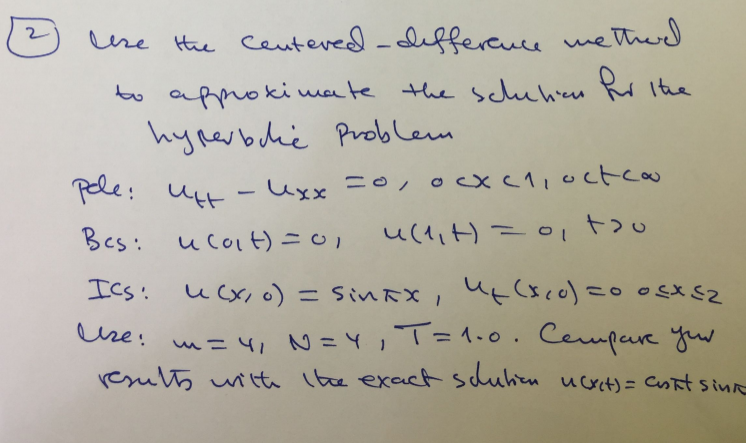 2 Use the centered-difference method
to approximate the solution for the
hyperbolic Problem
pde: u_tt - u_xx = 0, 0<x<1, 0<t<∞
Bcs: u(0,t) = 0, u(1,t) = 0, t>0
ICs: u(x,0) = sinπx, u_t(x,0) = 0 0≤x≤2
Use: m=4, N=4, T=1.0. Compare your
results with the exact solution u(x,t) = cosπt sinπ